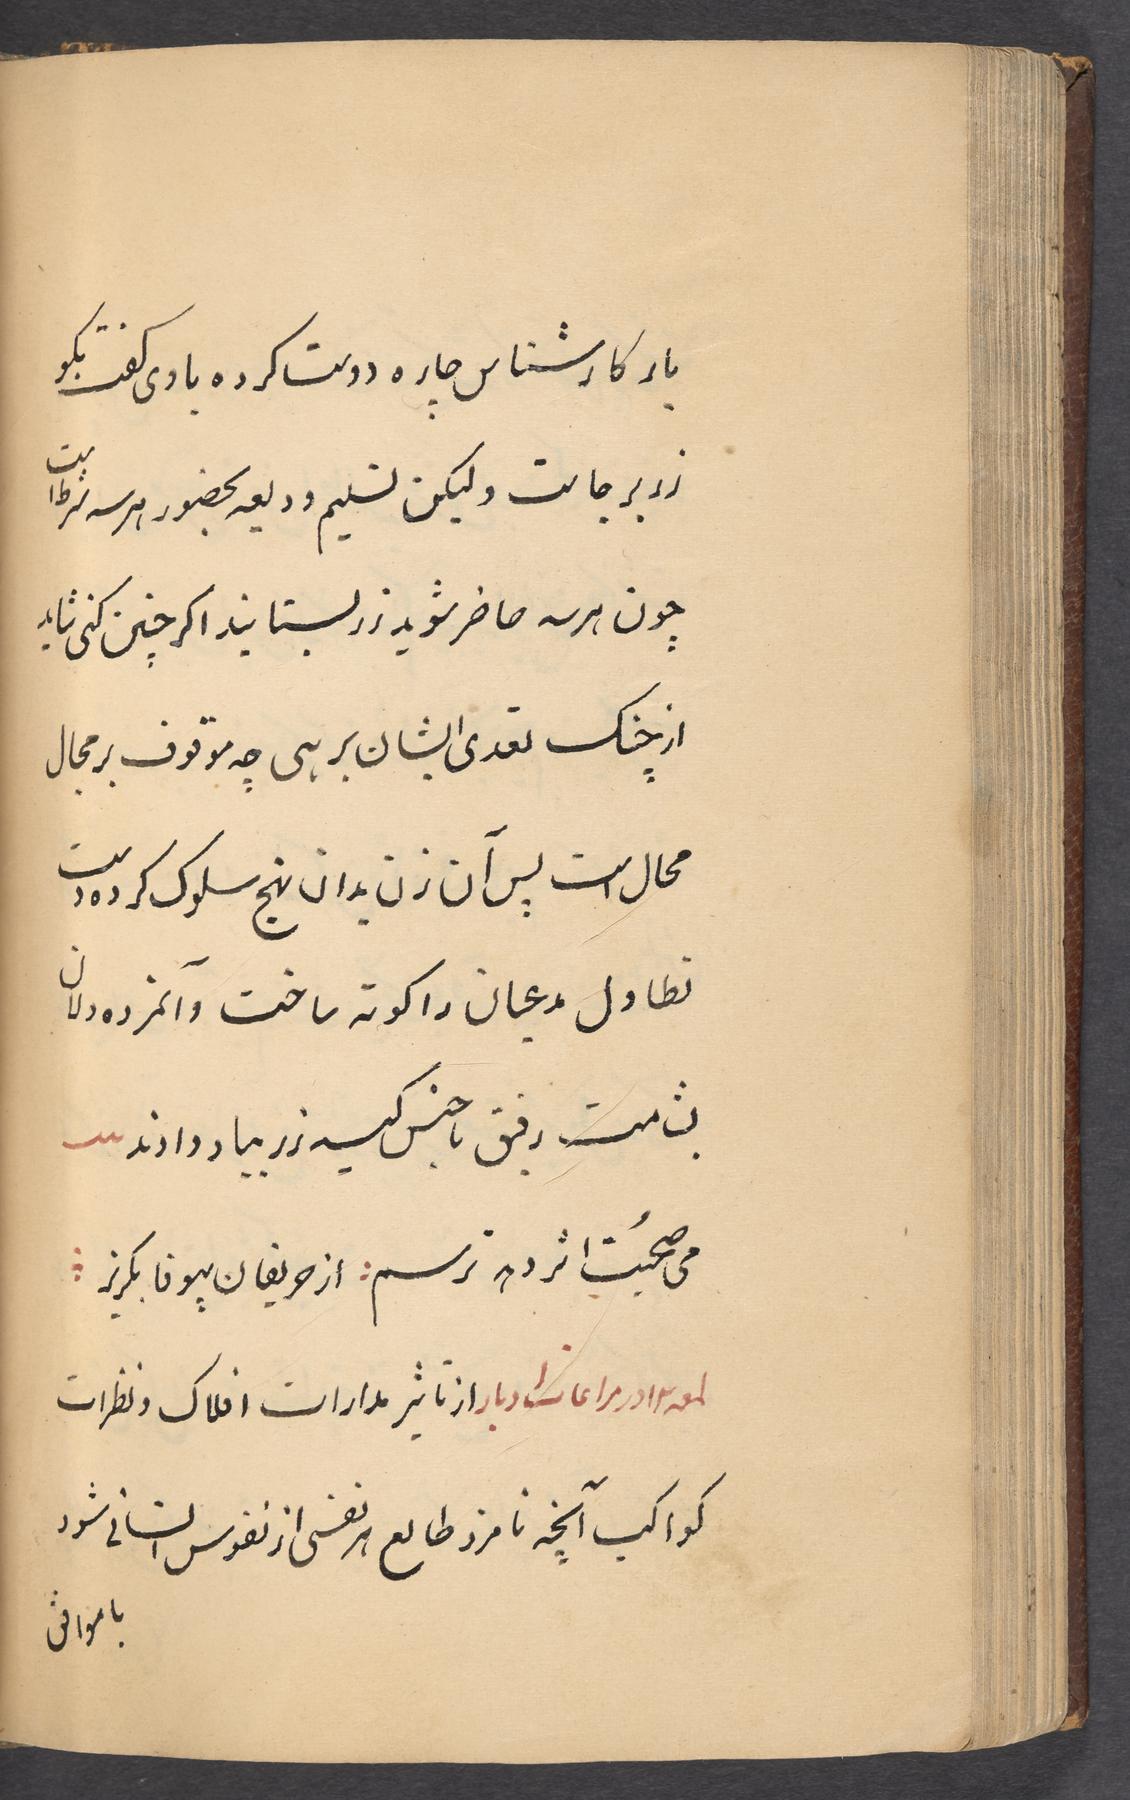 یار کارشناس چاره دوست کرده با وی گفت بگو
زر بر جاست ولیکن تسلیم ودیعه بحضور هر سه شرط است
چون هر سه حاضر شوید زر بستانید اگر چنین کنی شاید
از چنک تعدی ایشان برهی چه موقوف بر محال
محال است پس آن زن بدان نهج سلوک کرده دست
تطاول مدعیان را کوته ساخت و آنمرده دلان
بشامت رفیق ناجنس کیسه زر بباد دادند بیت
می صحبت اثر دهد ترسم : از حریفان بیوفا بگریز :
لمعه ۱۲ در مراعات ادبار از تاثیر مدارات افلاک و نظرات
کواکب آنچه نامزد طالع هر نفسی از نفوس انسانی شود
با موافق